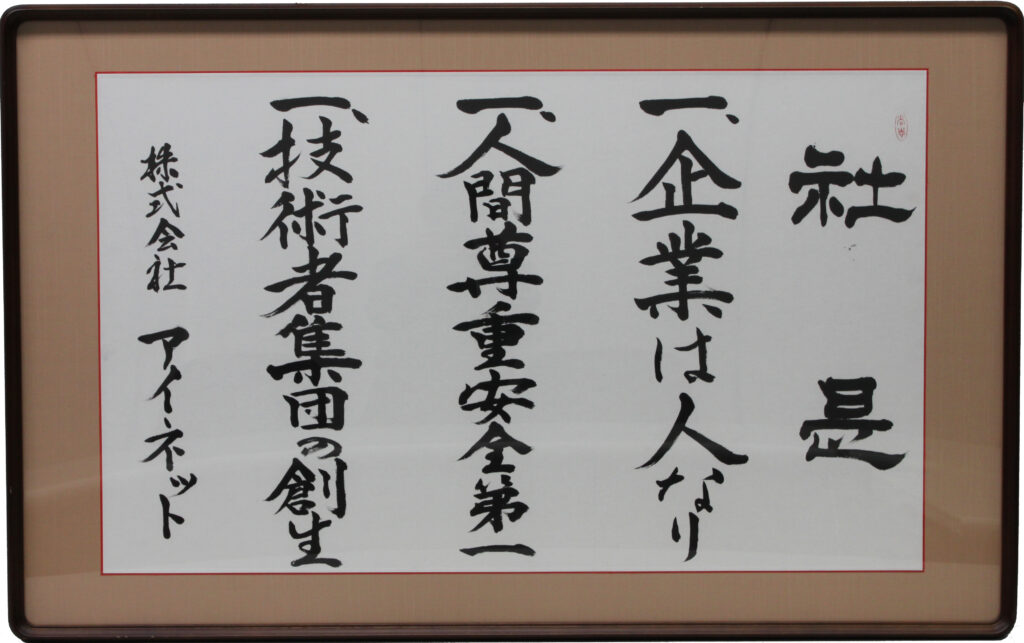 社是
一、企業は人なり
一、人間尊重安全第一
一、技術者集団の創生
株式会社 アイ・ネット